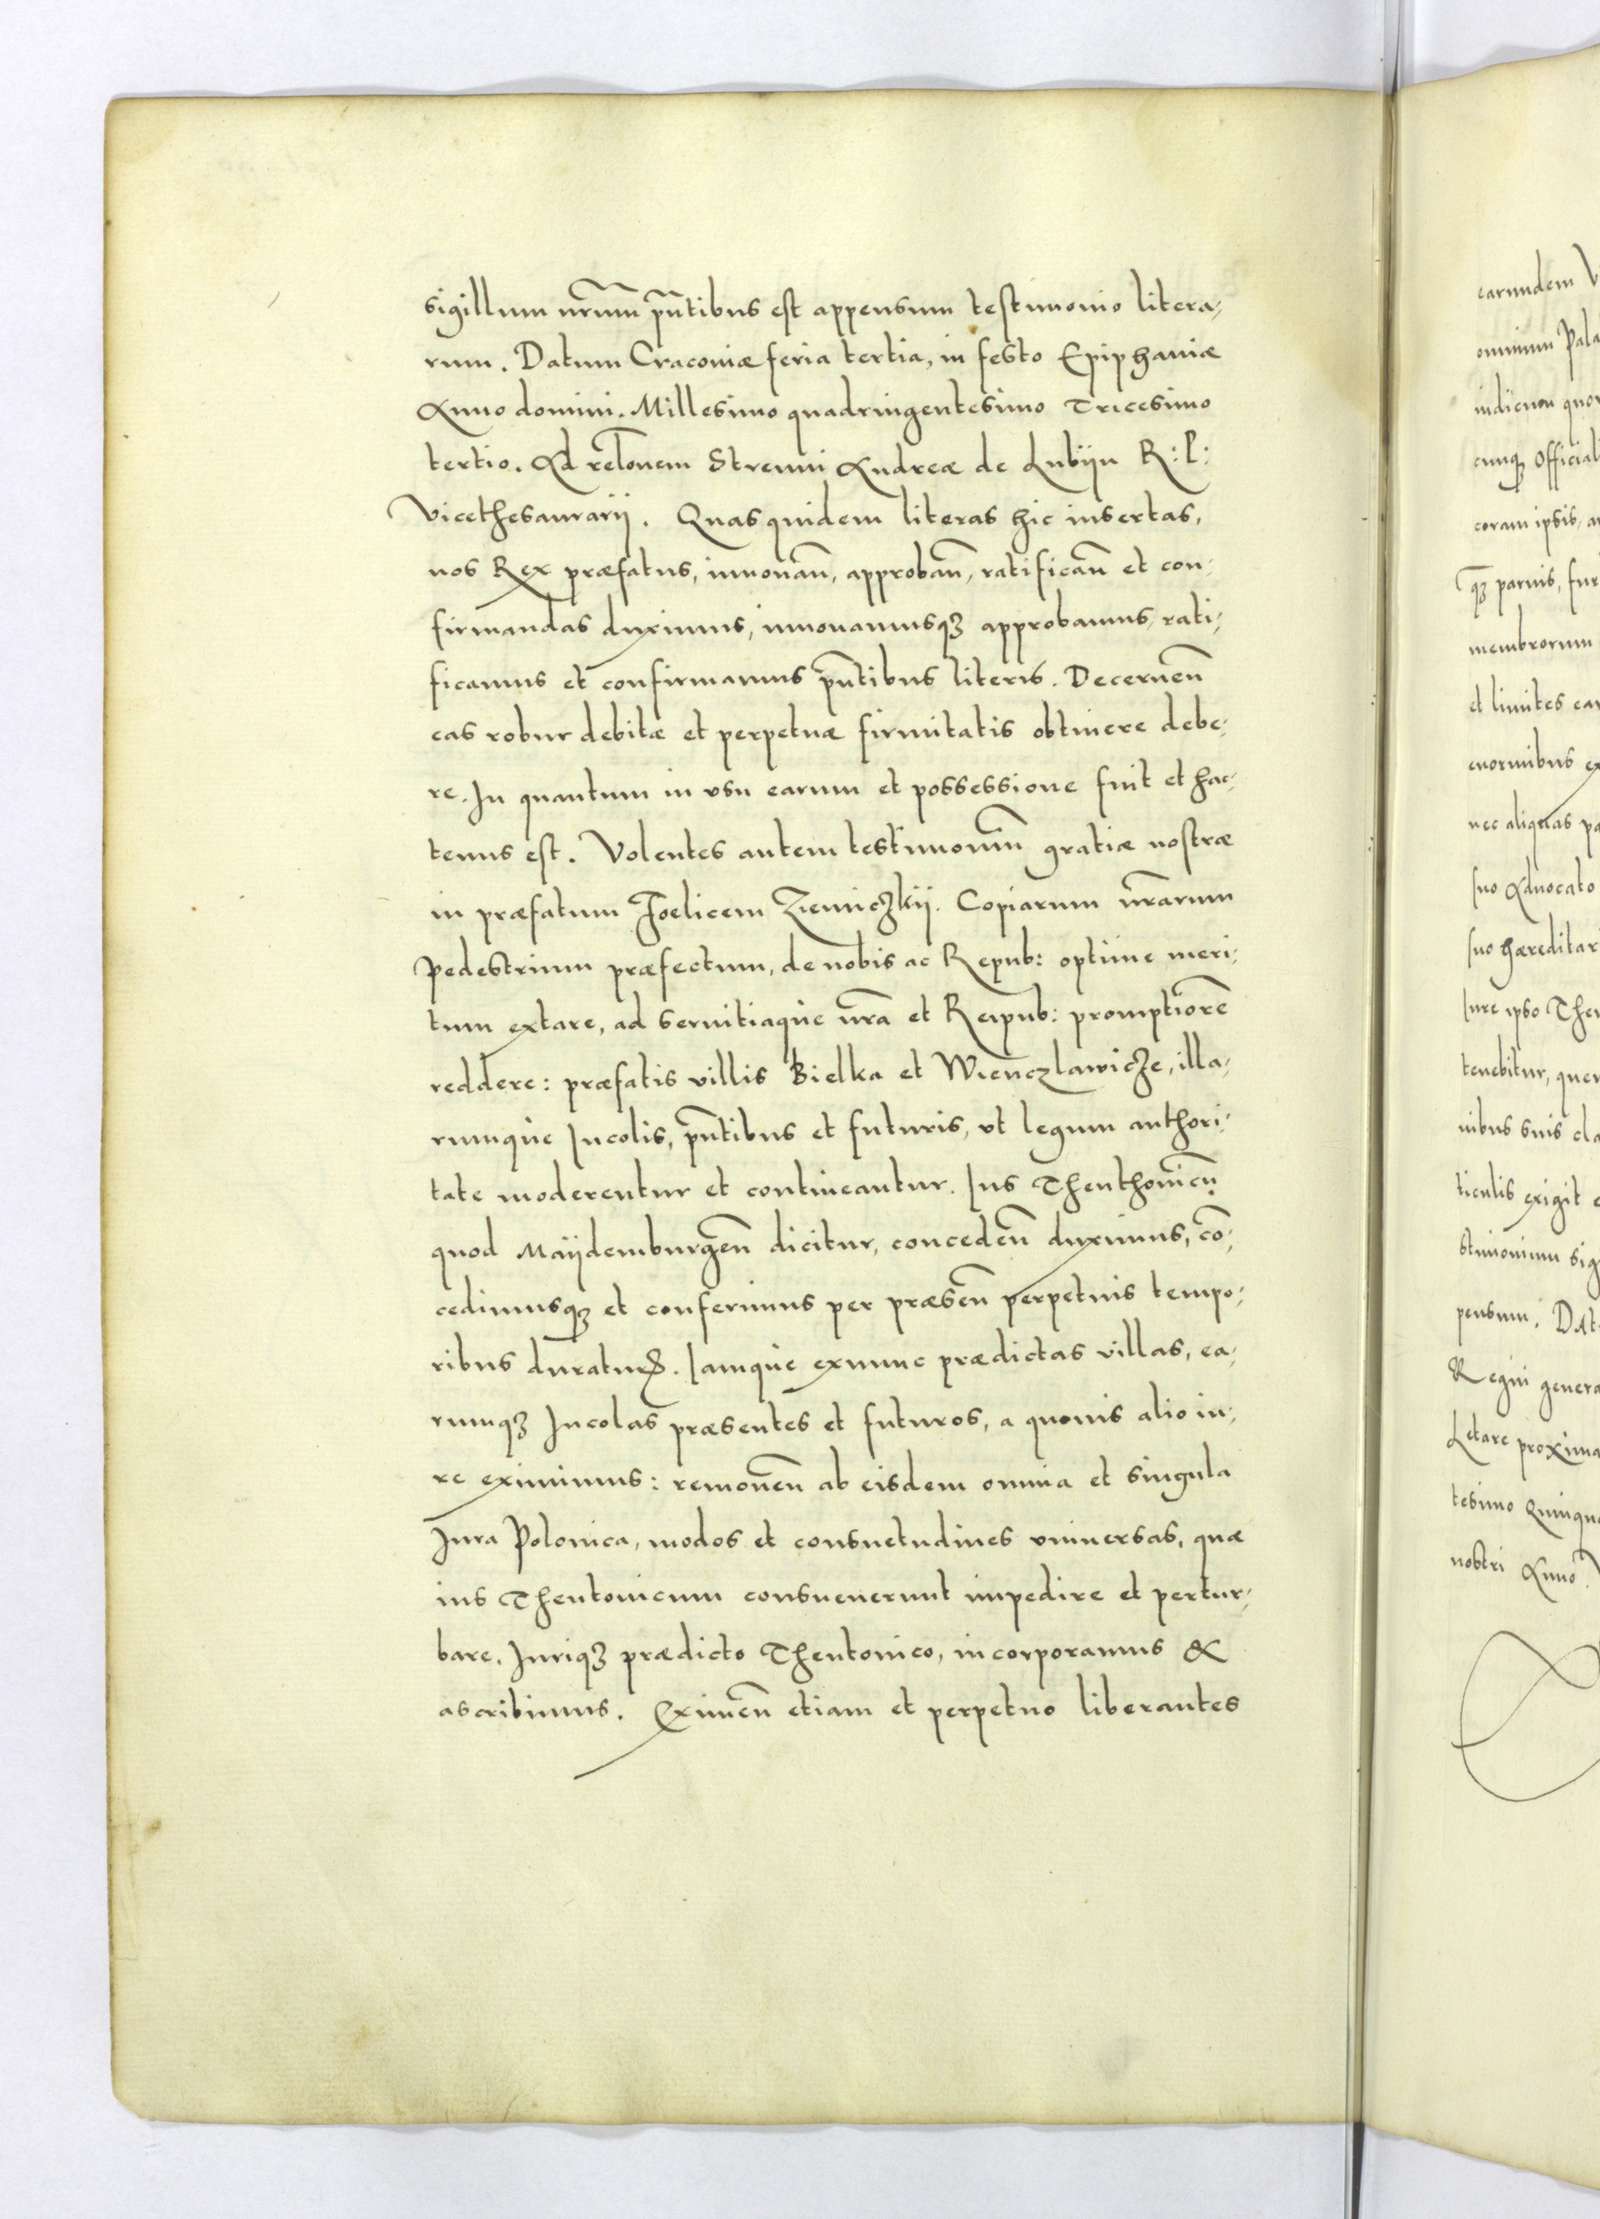 sigillum nr̃um pn̄tibus est appensum testimonio litera,
rum. Datum Cracoviæ feria tertia, in festo Epiphaniæ
Anno domini. Millesimo quadringentesimo Tricesimo
tertio. Ad relōnem Strenui Andreæ de Lubijn R: P:
Vicethesaurarij. Quas quidem literas hic insertas,
nos Rex præfatus, innovan̄, approban̄, ratifican̄ et con,
firmandas duximus, innovamusqȝ approbamus, rati,
ficamus et confirmamus pn̄tibus literis. Decernen̄
eas robur debitæ et perpetuæ firmitatis obtinere debe,
re. In quantum in vsu earum et possessione fuit et hac,
tenus est. Volentes autem testimoniū gratiæ nostræ
in præfatum Foelicem Ziemiczkij. Copiarum nr̃arum
pedestrium præfectum, de nobis ac Repub: optime meri,
tum extare, ad servitiaque nr̃a et Reipub: promptiorē
reddere: præfatis villis Bielka et Wienczlawicze, illa,
rumque Incolis, pn̄tibus et futuris, vt legum authori,
tate moderentur et contineantur. Ius Theuthonicū
quod Maÿdemburgen̄ dicitur, conceden̄ duximus, cō,
cedimusqȝ et conferimus per præsen̄ perpetuis tempo,
ribus duraturꝝ. Iamque exnunc prædictas villas, ea,
rumqȝ Incolas præsentes et futuros, a quovis alio iu,
re eximimus: removen̄ ab eisdem omnia et singula
Iura Polonica, modos et consuetudines vniversas, quæ
ius Theutonicum consueverunt impedire et pertur,
bare. Iuriqȝ prædicto Theutonico, incorporamus &
ascribimus. Eximen̄ etiam et perpetuo liberantes
earundem
omnium Pala
iudicum quor
cunqȝ Officiali
coram ipsis, au
qȝ parvis, fur
membrorum
et limites ear
enormibus ex
nec aliquas pæ
suo Advocato
suo hæreditari
Iure ipso Theu
tenebitur, quem
nibus suis cla
ticulis exigit e
stimonium sig
pensum. Dat
Regni genera
Letare proxima
tesimo Quinqua
nostri Anno